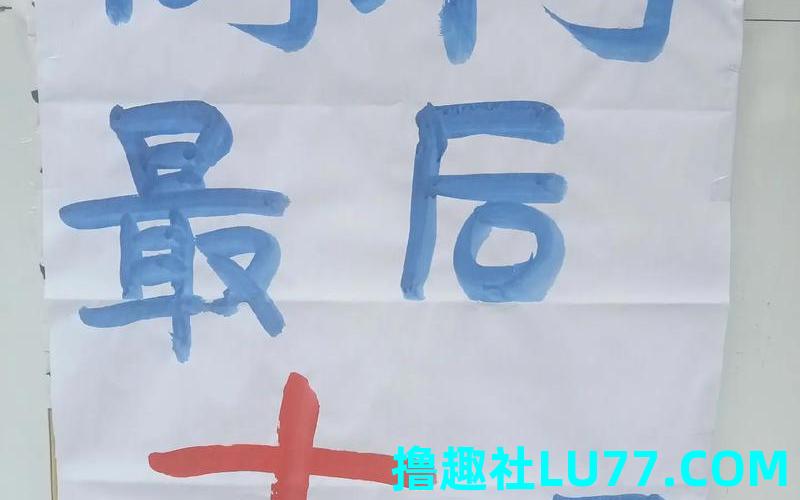 最后
十
撸趣社LU77.COM